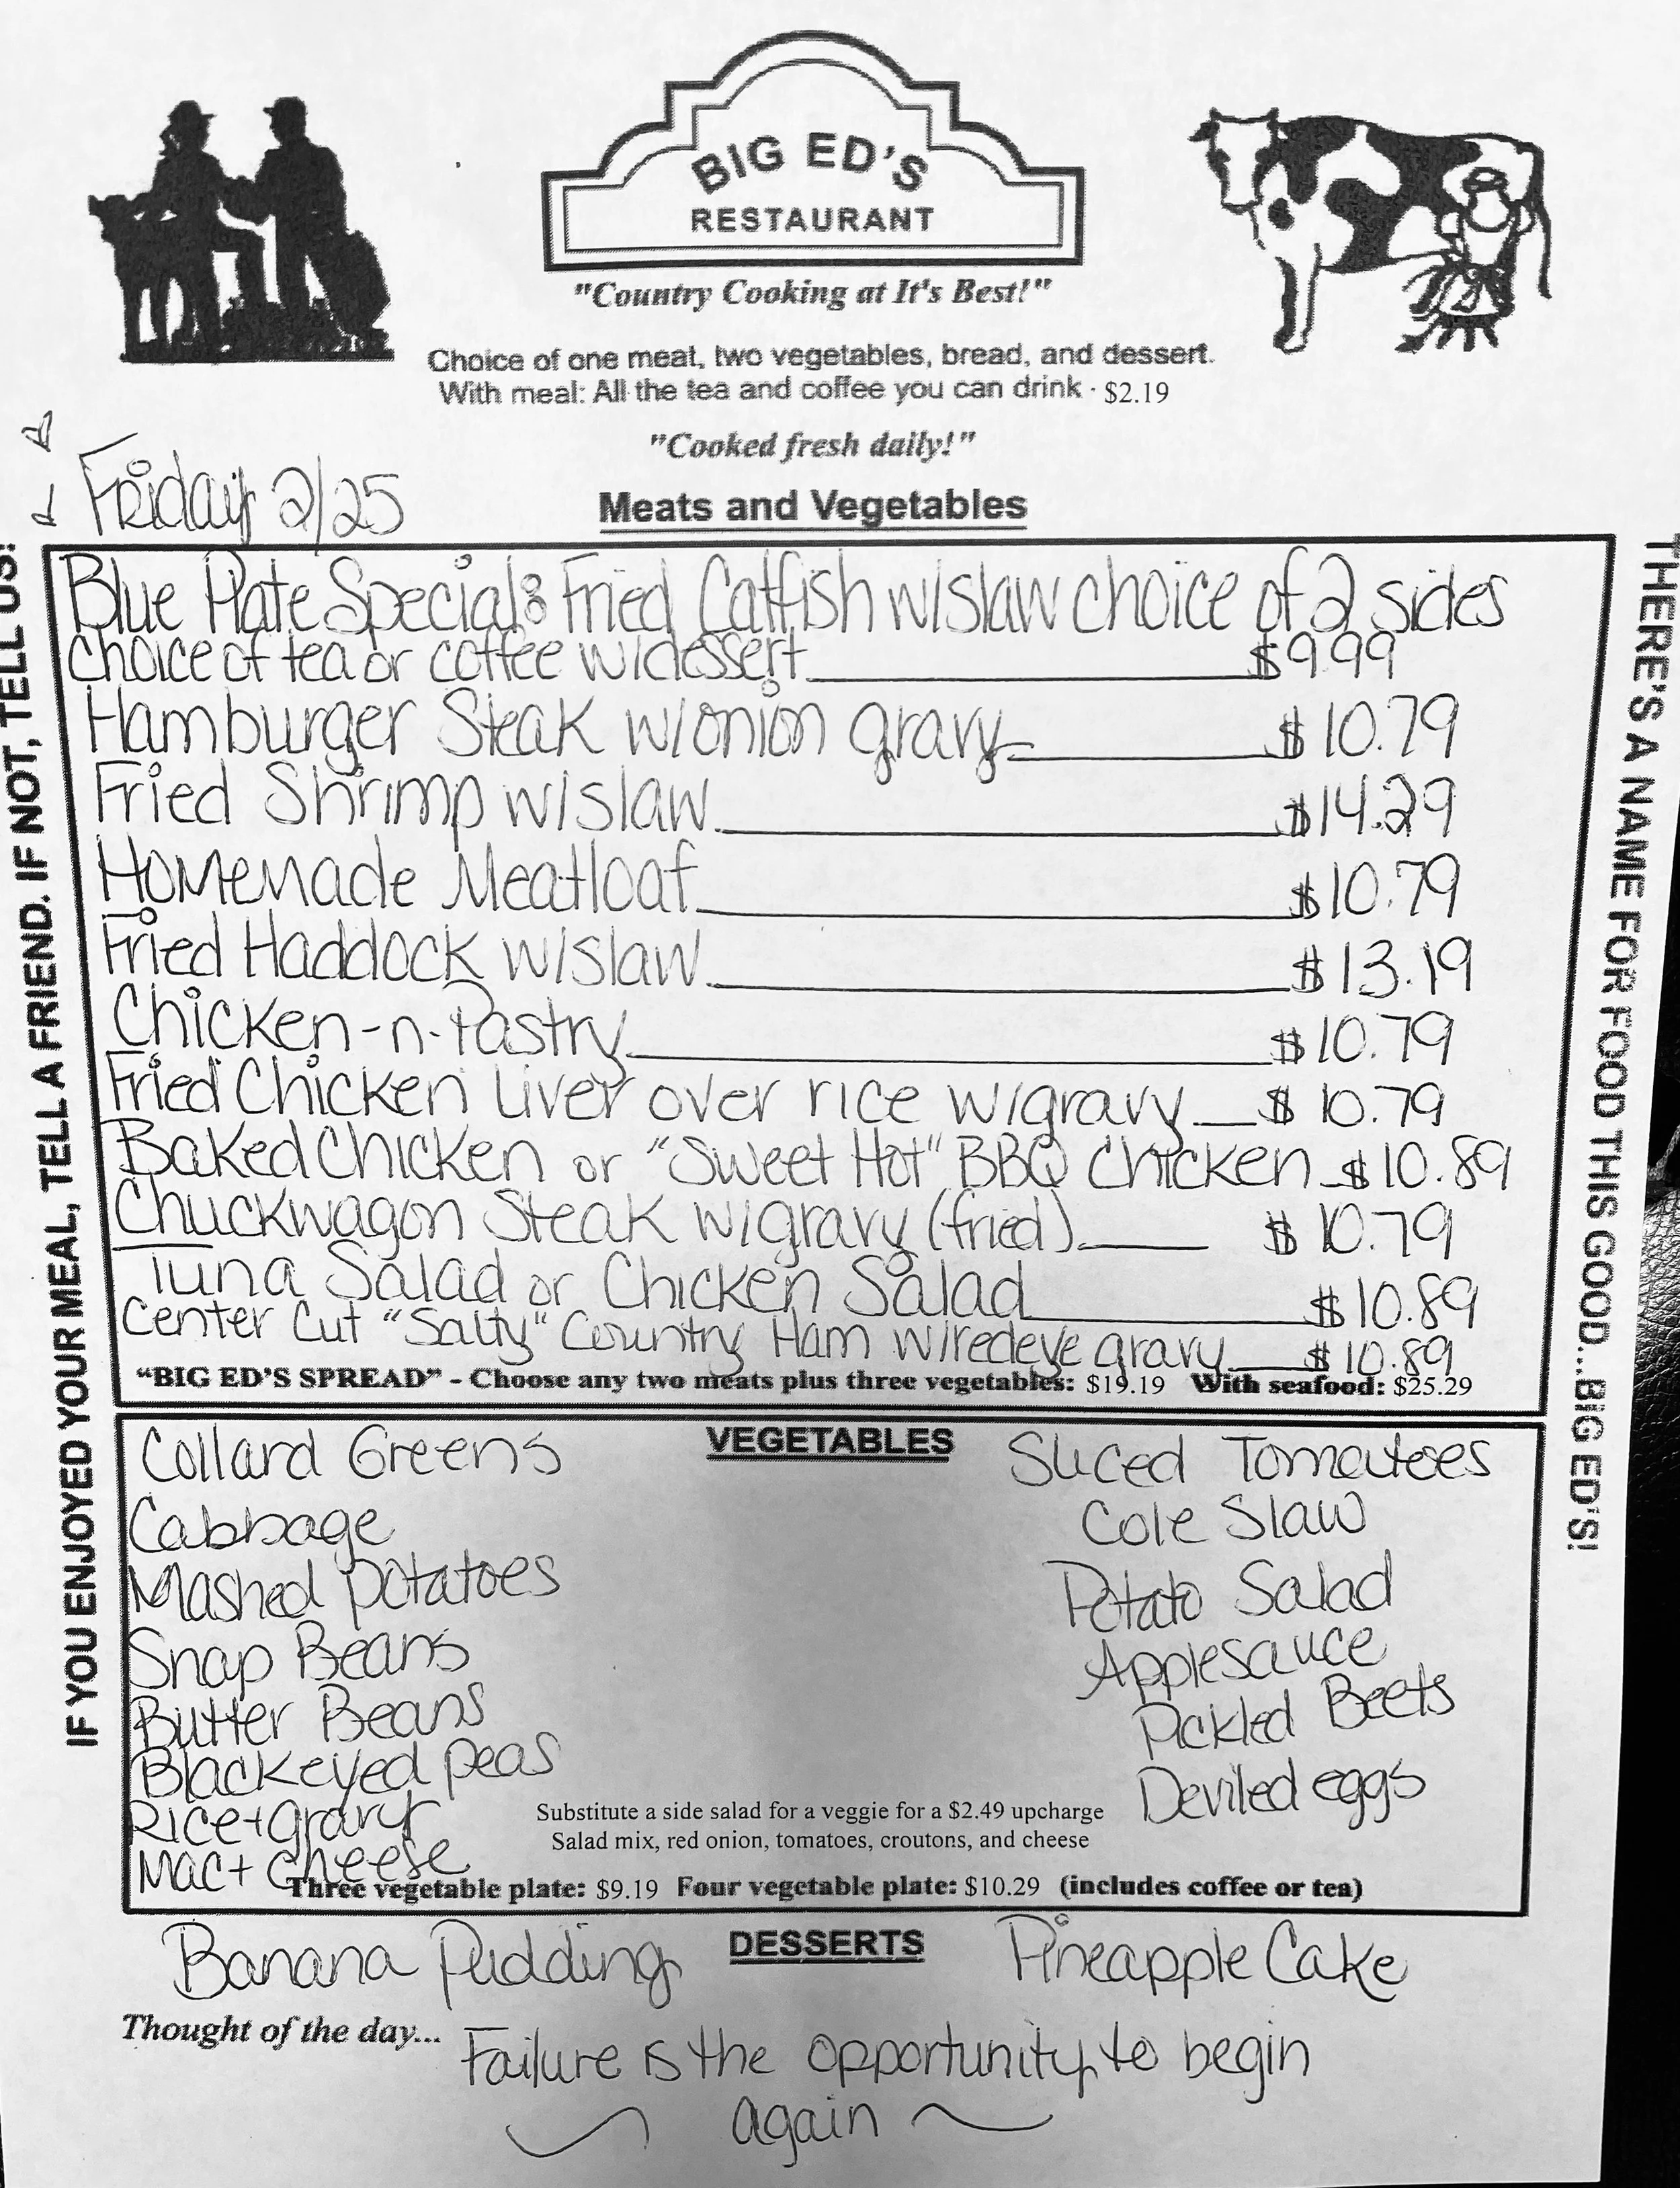 BIG ED'S
RESTAURANT
"Country Cooking at It's Best!"
Choice of one meat, two vegetables, bread, and dessert.
With meal: All the tea and coffee you can drink · $2.19
"Cooked fresh daily!"
Friday 2/25
Meats and Vegetables
IF YOU ENJOYED YOUR MEAL, TELL A FRIEND. IF NOT, TELL US!
Blue Plate Special: Fried Catfish w/slaw choice of 2 sides
choice of tea or coffee w/dessert $9.99
Hamburger Steak w/onion gravy $10.79
Fried Shrimp w/slaw $14.29
Homemade Meatloaf $10.79
Fried Haddock w/slaw $13.19
Chicken-n-Pastry $10.79
Fried Chicken Liver over rice w/gravy $10.79
Baked Chicken or "Sweet Hot" BBQ Chicken $10.89
Chuckwagon Steak w/gravy (fried) $10.79
Tuna Salad or Chicken Salad $10.89
Center Cut "Salty" Country Ham w/redeye gravy $10.89
"BIG ED'S SPREAD" - Choose any two meats plus three vegetables: $19.19 With seafood: $25.29
THERE'S A NAME FOR FOOD THIS GOOD...BIG ED'S!
VEGETABLES
Collard Greens
Cabbage
Mashed Potatoes
Snap Beans
Butter Beans
Blackeyed peas
Rice + gravy
Mac + cheese
Sliced Tomatoes
Cole Slaw
Potato Salad
Applesauce
Pickled Beets
Deviled eggs
Substitute a side salad for a veggie for a $2.49 upcharge
Salad mix, red onion, tomatoes, croutons, and cheese
Three vegetable plate: $9.19 Four vegetable plate: $10.29 (includes coffee or tea)
DESSERTS
Banana Pudding
Pineapple Cake
Thought of the day...
Failure is the opportunity to begin
again